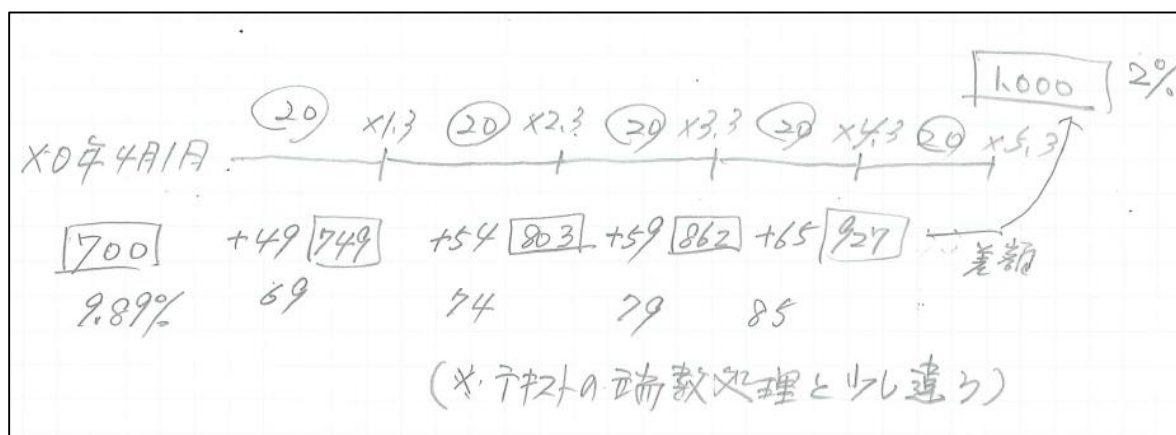 1.000 2%
20 ×1.3 20 ×2.3 20 ×3.3 20 ×4.3 20 ×5.3
×0年4月1日
700 +49 749 +54 803 +59 862 +65 927 差額
9.89% 69 74 79 85
(※テキストの端数処理と少し違う)